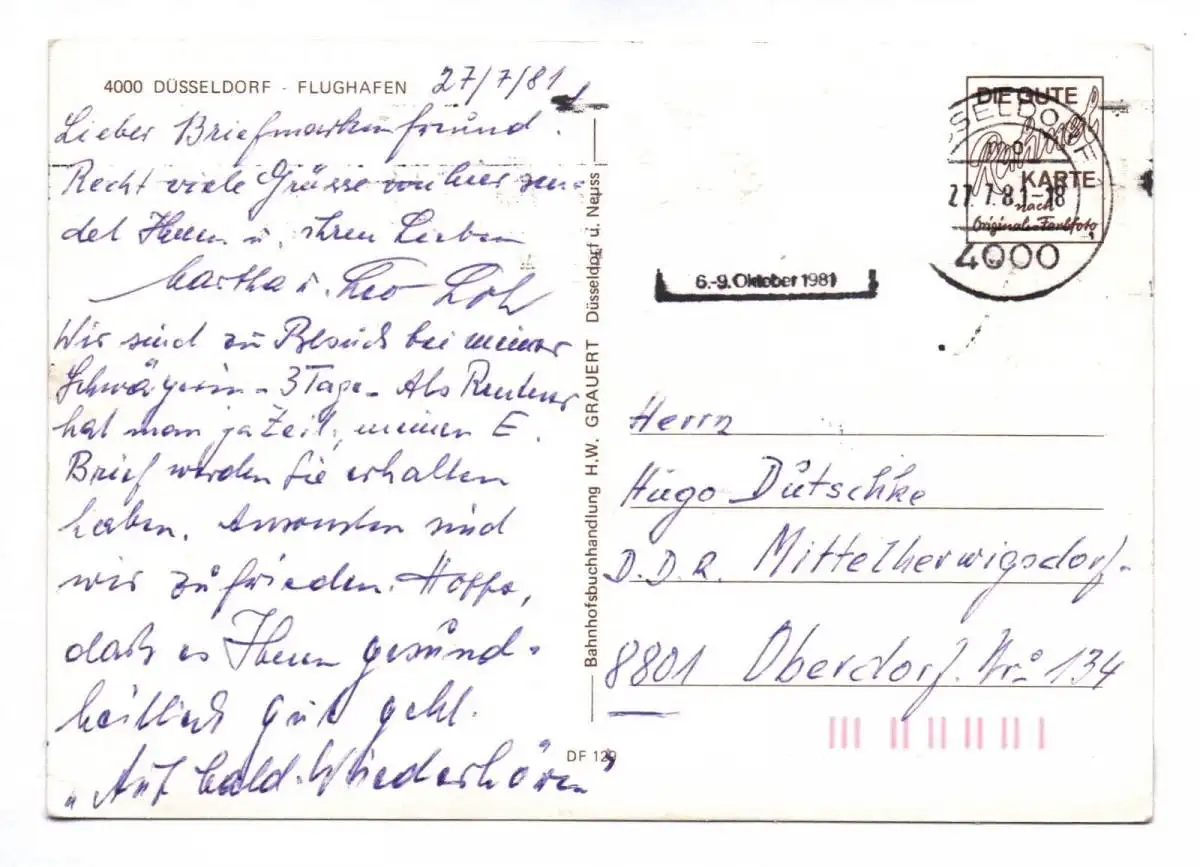 4000 DÜSSELDORF - FLUGHAFEN 27/7/81
Lieber Briefmarkenfreund.
Recht viele Grüsse von hier sen-
det Ihnen u. ihren Lieben
Martha u. Leo
Wir sind zu Besuch bei meiner
Schwägerin - 3 Tage - Als Rentner
hat man ja Zeit, meinen E.
Brief werden Sie erhalten
haben. Ansonsten sind
wir zufrieden. Hoffe,
daß es Ihnen gesund-
heitlich gut geht.
"Auf bald. Wiederhören"
Bahnhofsbuchhandlung H.W. GRAUERT Düsseldorf u. Neuss
DF 129
DIE GUTE
Ruhmel
KARTE
nach
Original-Farbfoto
SSELDO
27.7.81-18
4000
6.-9. Oktober 1981
Herrn
Hugo Dütschke
D.D.R. Mittelherwigsdorf-
8801 Oberdorf. Nr. 134